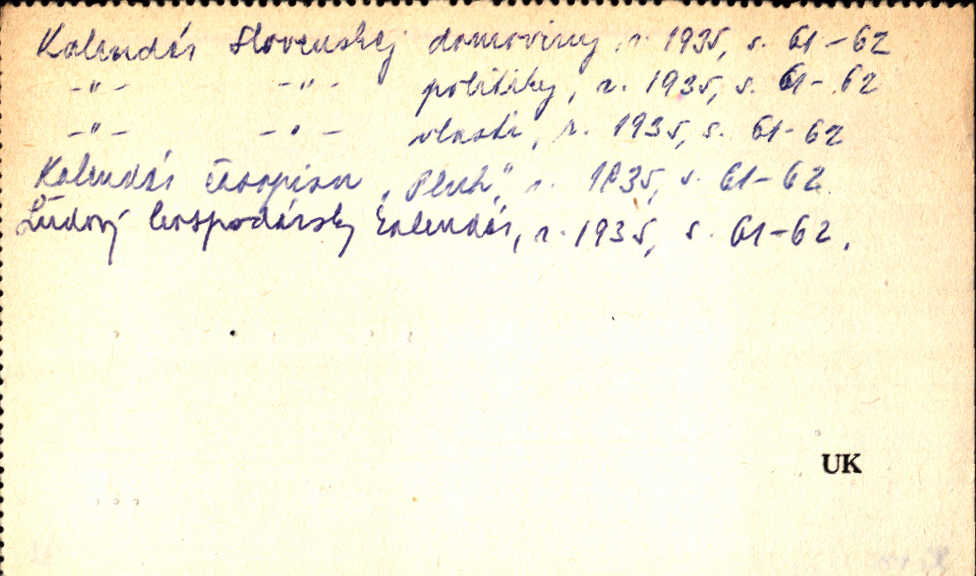 Kalendár Slovenskej domoviny, r. 1935, s. 61-62
-"- -"- politiky, r. 1935, s. 61-62
-"- -"- vlasti, r. 1935, s. 61-62
Kalendár časopisu „Pluh", r. 1935, s. 61-62
Ľudový hospodársky kalendár, r. 1935, s. 61-62.
UK